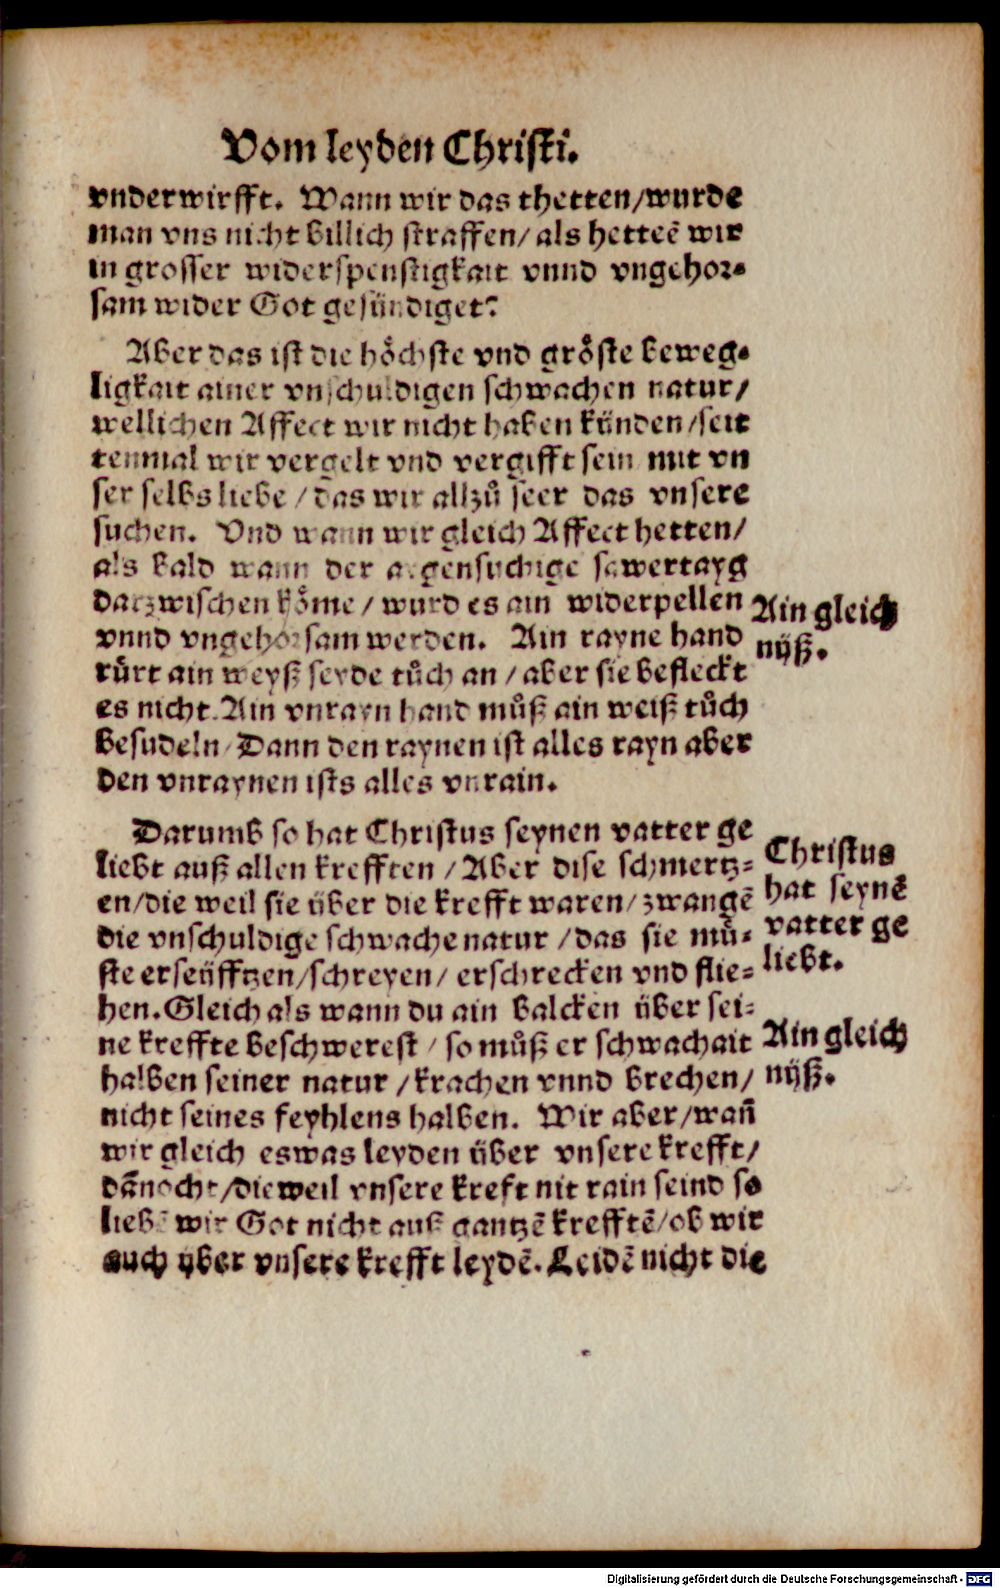 Vom leyden Christi.
vnderwirfft. Wann wir das thetten/wurde
man vns nicht billich straffen/ als hetteē wir
in grosser widerspenstigkait vnnd vngehor-
sam wider Got gesündiget?
Aber das ist die hoͤchste vnd groͤste beweg-
ligkait ainer vnschuldigen schwachen natur/
wellichen Affect wir nicht haben künden/seit
tenmal wir vergelt vnd vergifft sein mit vn
ser selbs liebe/das wir allzuͦ seer das vnsere
suchen. Vnd wann wir gleich Affect hetten/
als bald wann der aigensuchige sawertayg
darzwischen koͤme/ wurd es ain widerpellen
vnnd vngehorsam werden. Ain rayne hand
ruͤrt ain weyß seyde tuͦch an/aber sie befleckt
es nicht. Ain vnrayn hand muͦß ain weiß tuͦch
besudeln/Dann den raynen ist alles rayn aber
den vnraynen ists alles vnrain.
Ain gleich
nüß.
Darumb so hat Christus seynen vatter ge
liebt auß allen krefften/Aber dise schmertz-
en/die weil sie über die krefft waren/zwangē
die vnschuldige schwache natur/das sie muͤ-
ste erseüfftzen/schreyen/ erschrecken vnd flie-
hen. Gleich als wann du ain balcken über sei-
ne kreffte beschwerest/ so muͦß er schwachait
halben seiner natur/krachen vnnd brechen/
nicht seines feyhlens halben. Wir aber/wañ
wir gleich eswas leyden über vnsere krefft/
dānocht/dieweil vnsere kreft nit rain seind so
liebē wir Got nicht auß gantzē krefftē/ob wir
auch über vnsere krefft leydē. Leidē nicht die
Christus
hat seynē
vatter ge
liebt.
Ain gleich
nüß.
Digitalisierung gefördert durch die Deutsche Forschungsgemeinschaft - DFG